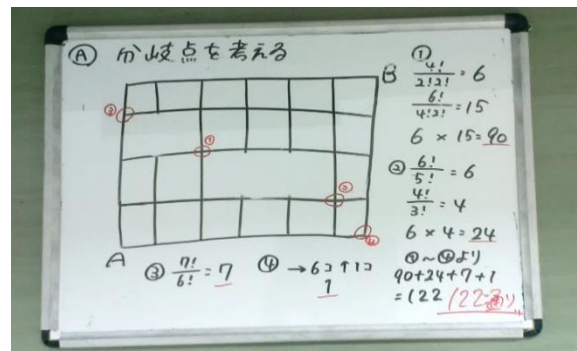 Ⓐ 分岐点を考える
B
A
①
②
③
④
①
4!/2!2! = 6
6!/4!2! = 15
6 × 15 = 90
② 6!/5! = 6
4!/3! = 4
6 × 4 = 24
③ 7!/6! = 7
④ →6コ↑1コ
1
①~④より
90+24+7+1
=122 122通り